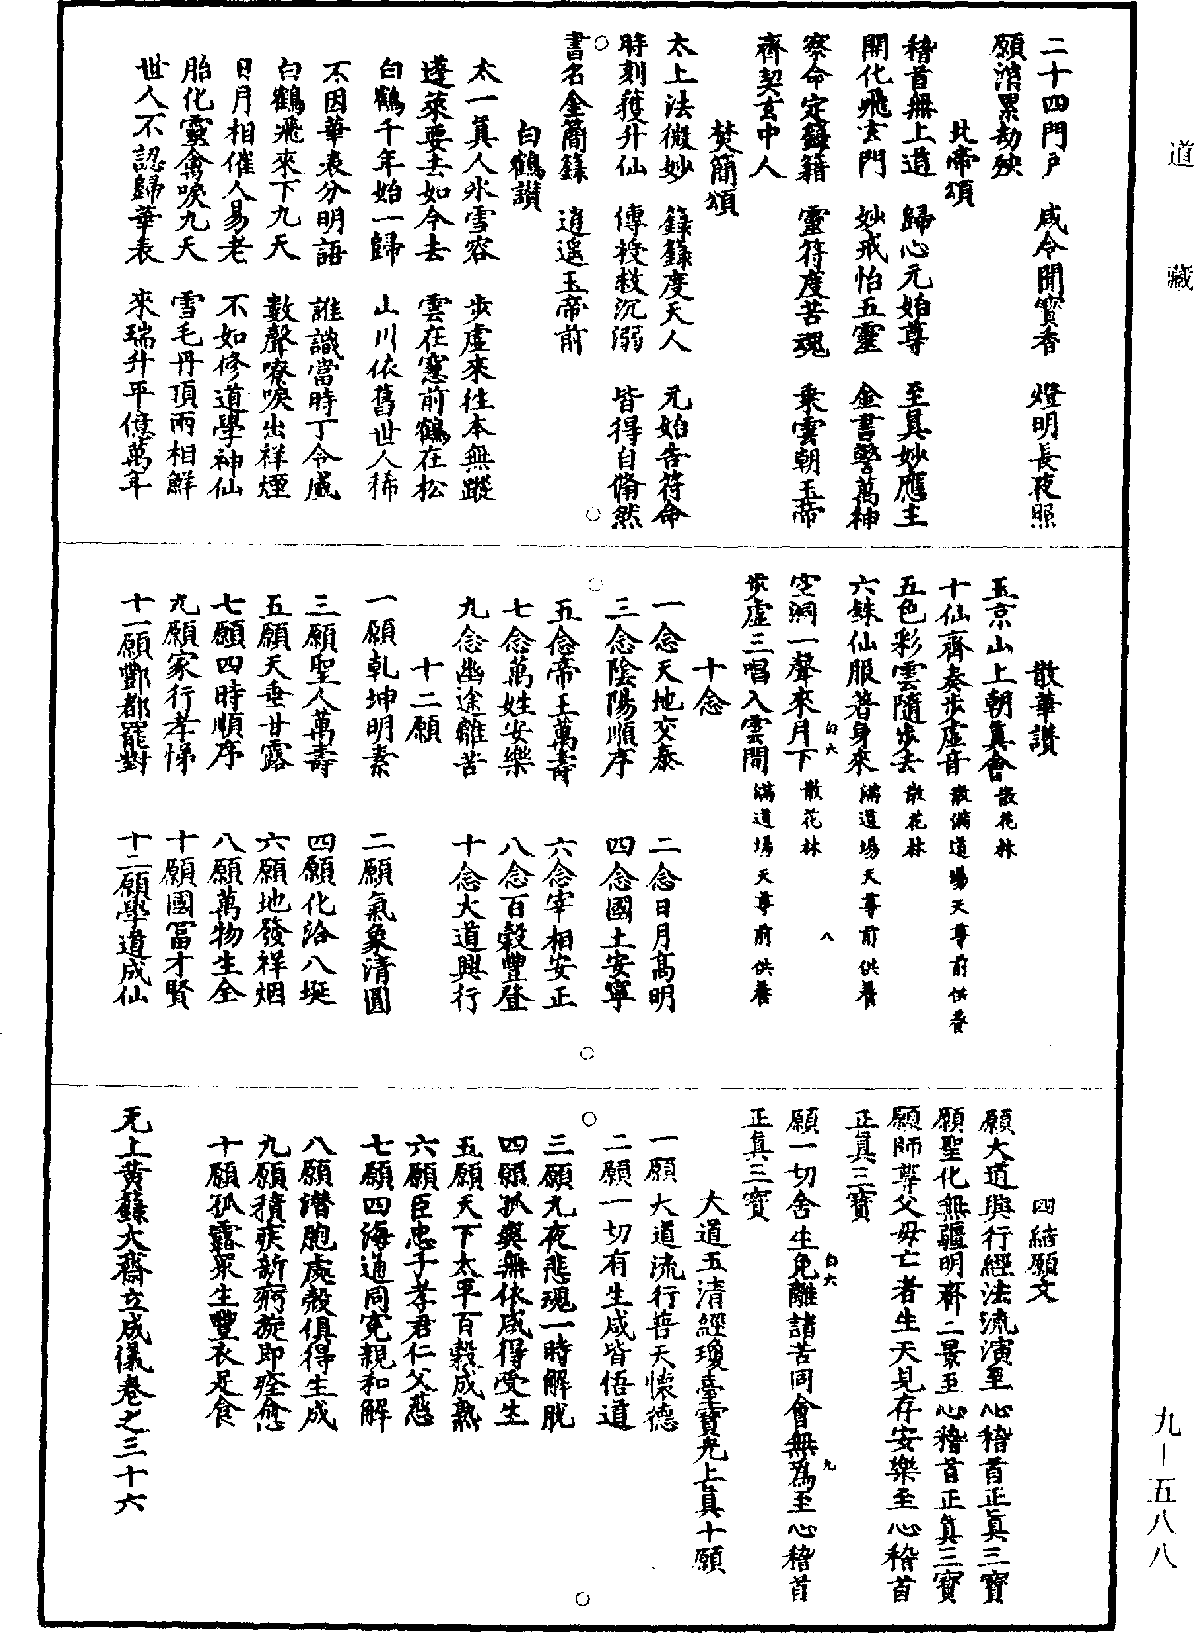 道藏
二十四門戶　咸令開寳香　燈明長夜照
願消累劫殃
北帝頌
稽首無上道　歸心元始尊　至具妙應主
開化飛玄門　妙戒怡五靈　金書擊萬神
察命定籙籍　靈符度苦魂　乘雲朝玉帝
齊契玄中人
焚簡頌
太上法微妙　籙籙度天人　元始告符命
時刻獲升仙　傳授救沉溺　皆得自翛然
書名金簡籙　逍遥玉帝前
白鶴讃
太一真人氷雪容　步虛來往本無蹤
蓬萊要去如今去　雲在窓前鶴在松
白鶴千年始一歸　山川依舊世人稀
不因華表分明語　誰識當時丁令威
白鶴飛來下九天　數聲嘹唳出祥煙
日月相催人易老　不如修道學神仙
胎化靈禽唳九天　雪毛丹頂兩相鮮
世人不認歸華表　來瑞升平億萬年
散華讃
玉京山上朝真會散花林
十仙齊奏步虛音散滿道場天尊前供養
五色彩雲隨步去散花林
六銖仙服著身來滿道場天尊前供養
空洞一聲來月下散花林
白六　八
步虛三唱入雲間滿道場天尊前供養
十念
一念天地交泰　二念日月高明
三念陰陽順序　四念國土安寧
五念帝王萬壽　六念宰相安正
七念萬姓安樂　八念百穀豐登
九念幽途離苦　十念大道興行
十二願
一願乾坤明素　二願氣象清圓
三願聖人萬壽　四願化洽八埏
五願天垂甘露　六願地發祥烟
七願四時順序　八願萬物生全
九願家行孝悌　十願國冨才賢
十一願酆都罷對　十二願學道成仙
四結願文
願大道興行經法流演至心稽首正真三寳
願聖化無疆明齊二景至心稽首正真三寳
願師尊父母亡者生天見存安樂至心稽首
正真三寳
願一切含生免離諸苦同會無為至心稽首
白六　九
正真三寳
大道五清經瓊臺寳光上真十願
一願大道流行善天懷德
二願一切有生咸皆悟道
三願九夜悲魂一時解脫
四願孤㷀無依咸得受生
五願天下太平百穀成熟
六願臣忠子孝君仁父慈
七願四海通同寃親和解
八願潜胞處殻俱得生成
九願積疾新痾旋即痊愈
十願孤露衆生豐衣足食
无上黄籙大齋立成儀卷之三十六
九－五八八